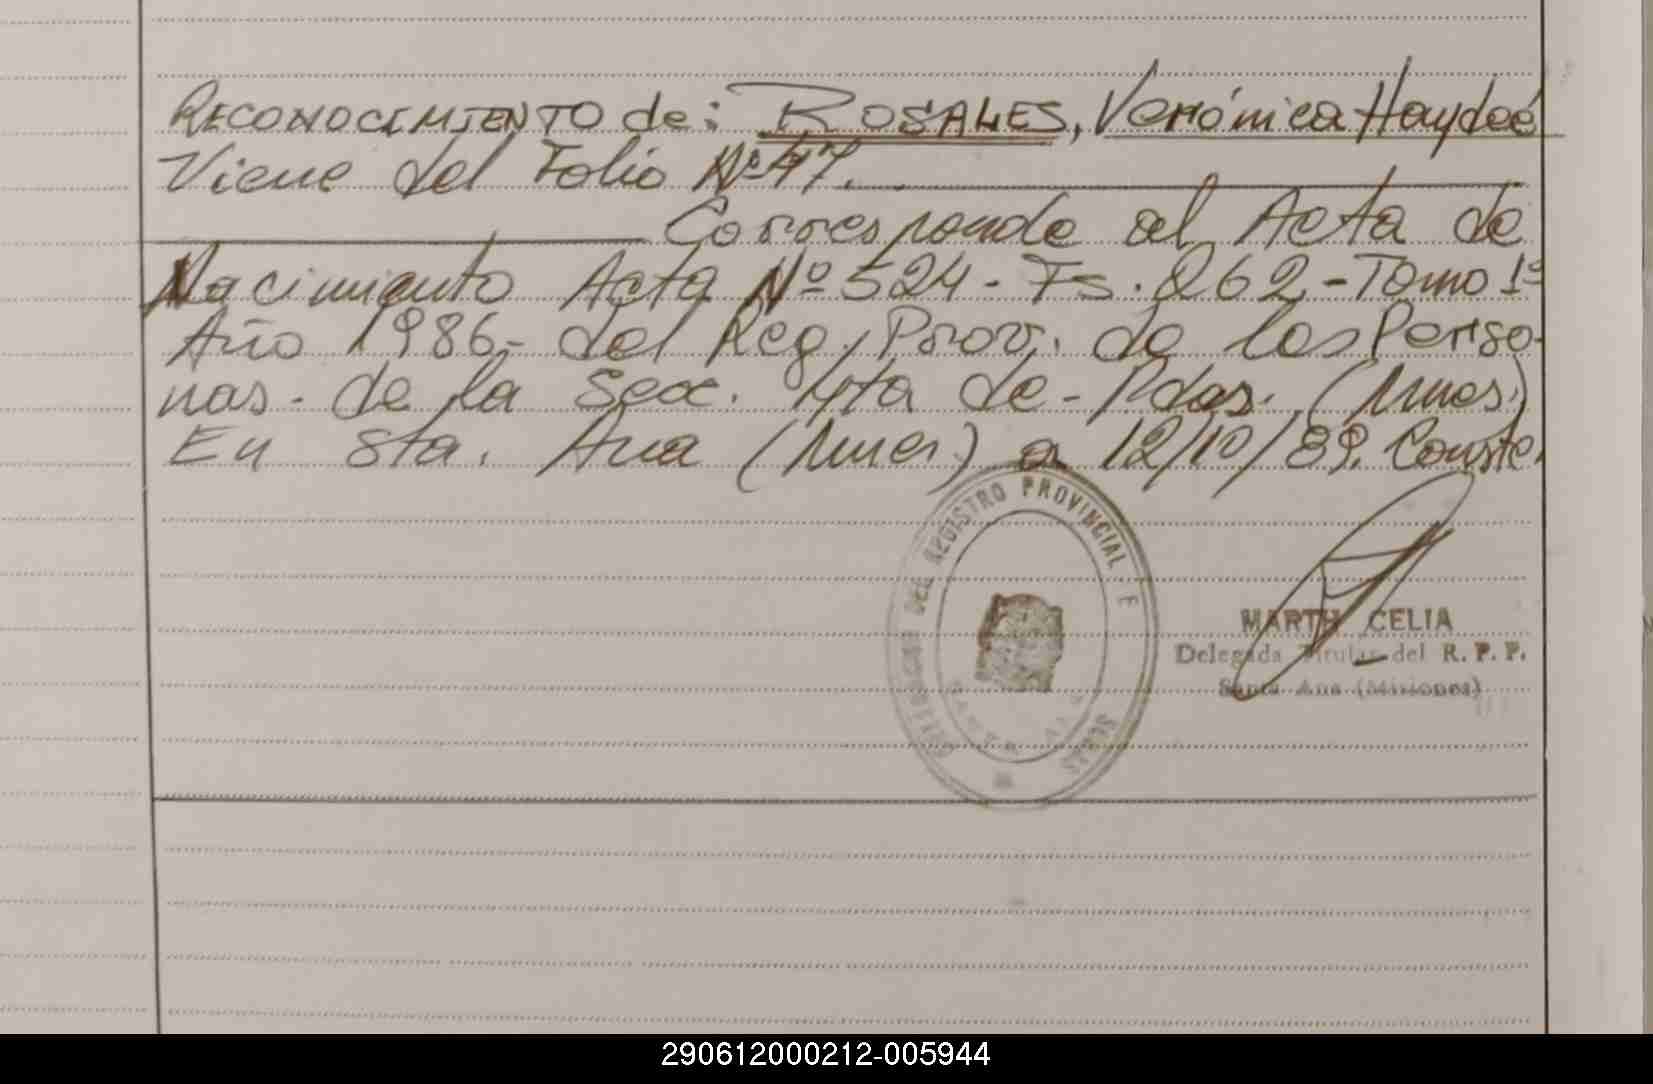 RECONOCIMIENTO de: ROSALES, Verónica Haydeé
Viene del Folio Nº 47.
Corresponde al Acta de
Nacimiento Acta Nº 524 - Fs. 262 - Tomo 1º
Año 1986 - del Reg. Prov. de las Perso-
nas - de la Secc. 4ta de - Pdas. (Mnes.)
En Sta. Ana (Mnes) a 12/10/89. Conste.
DEL REGISTRO PROVINCIAL
MARTH CELIA
Delegada Titular del R. P. P.
Santa Ana (Misiones)
290612000212-005944